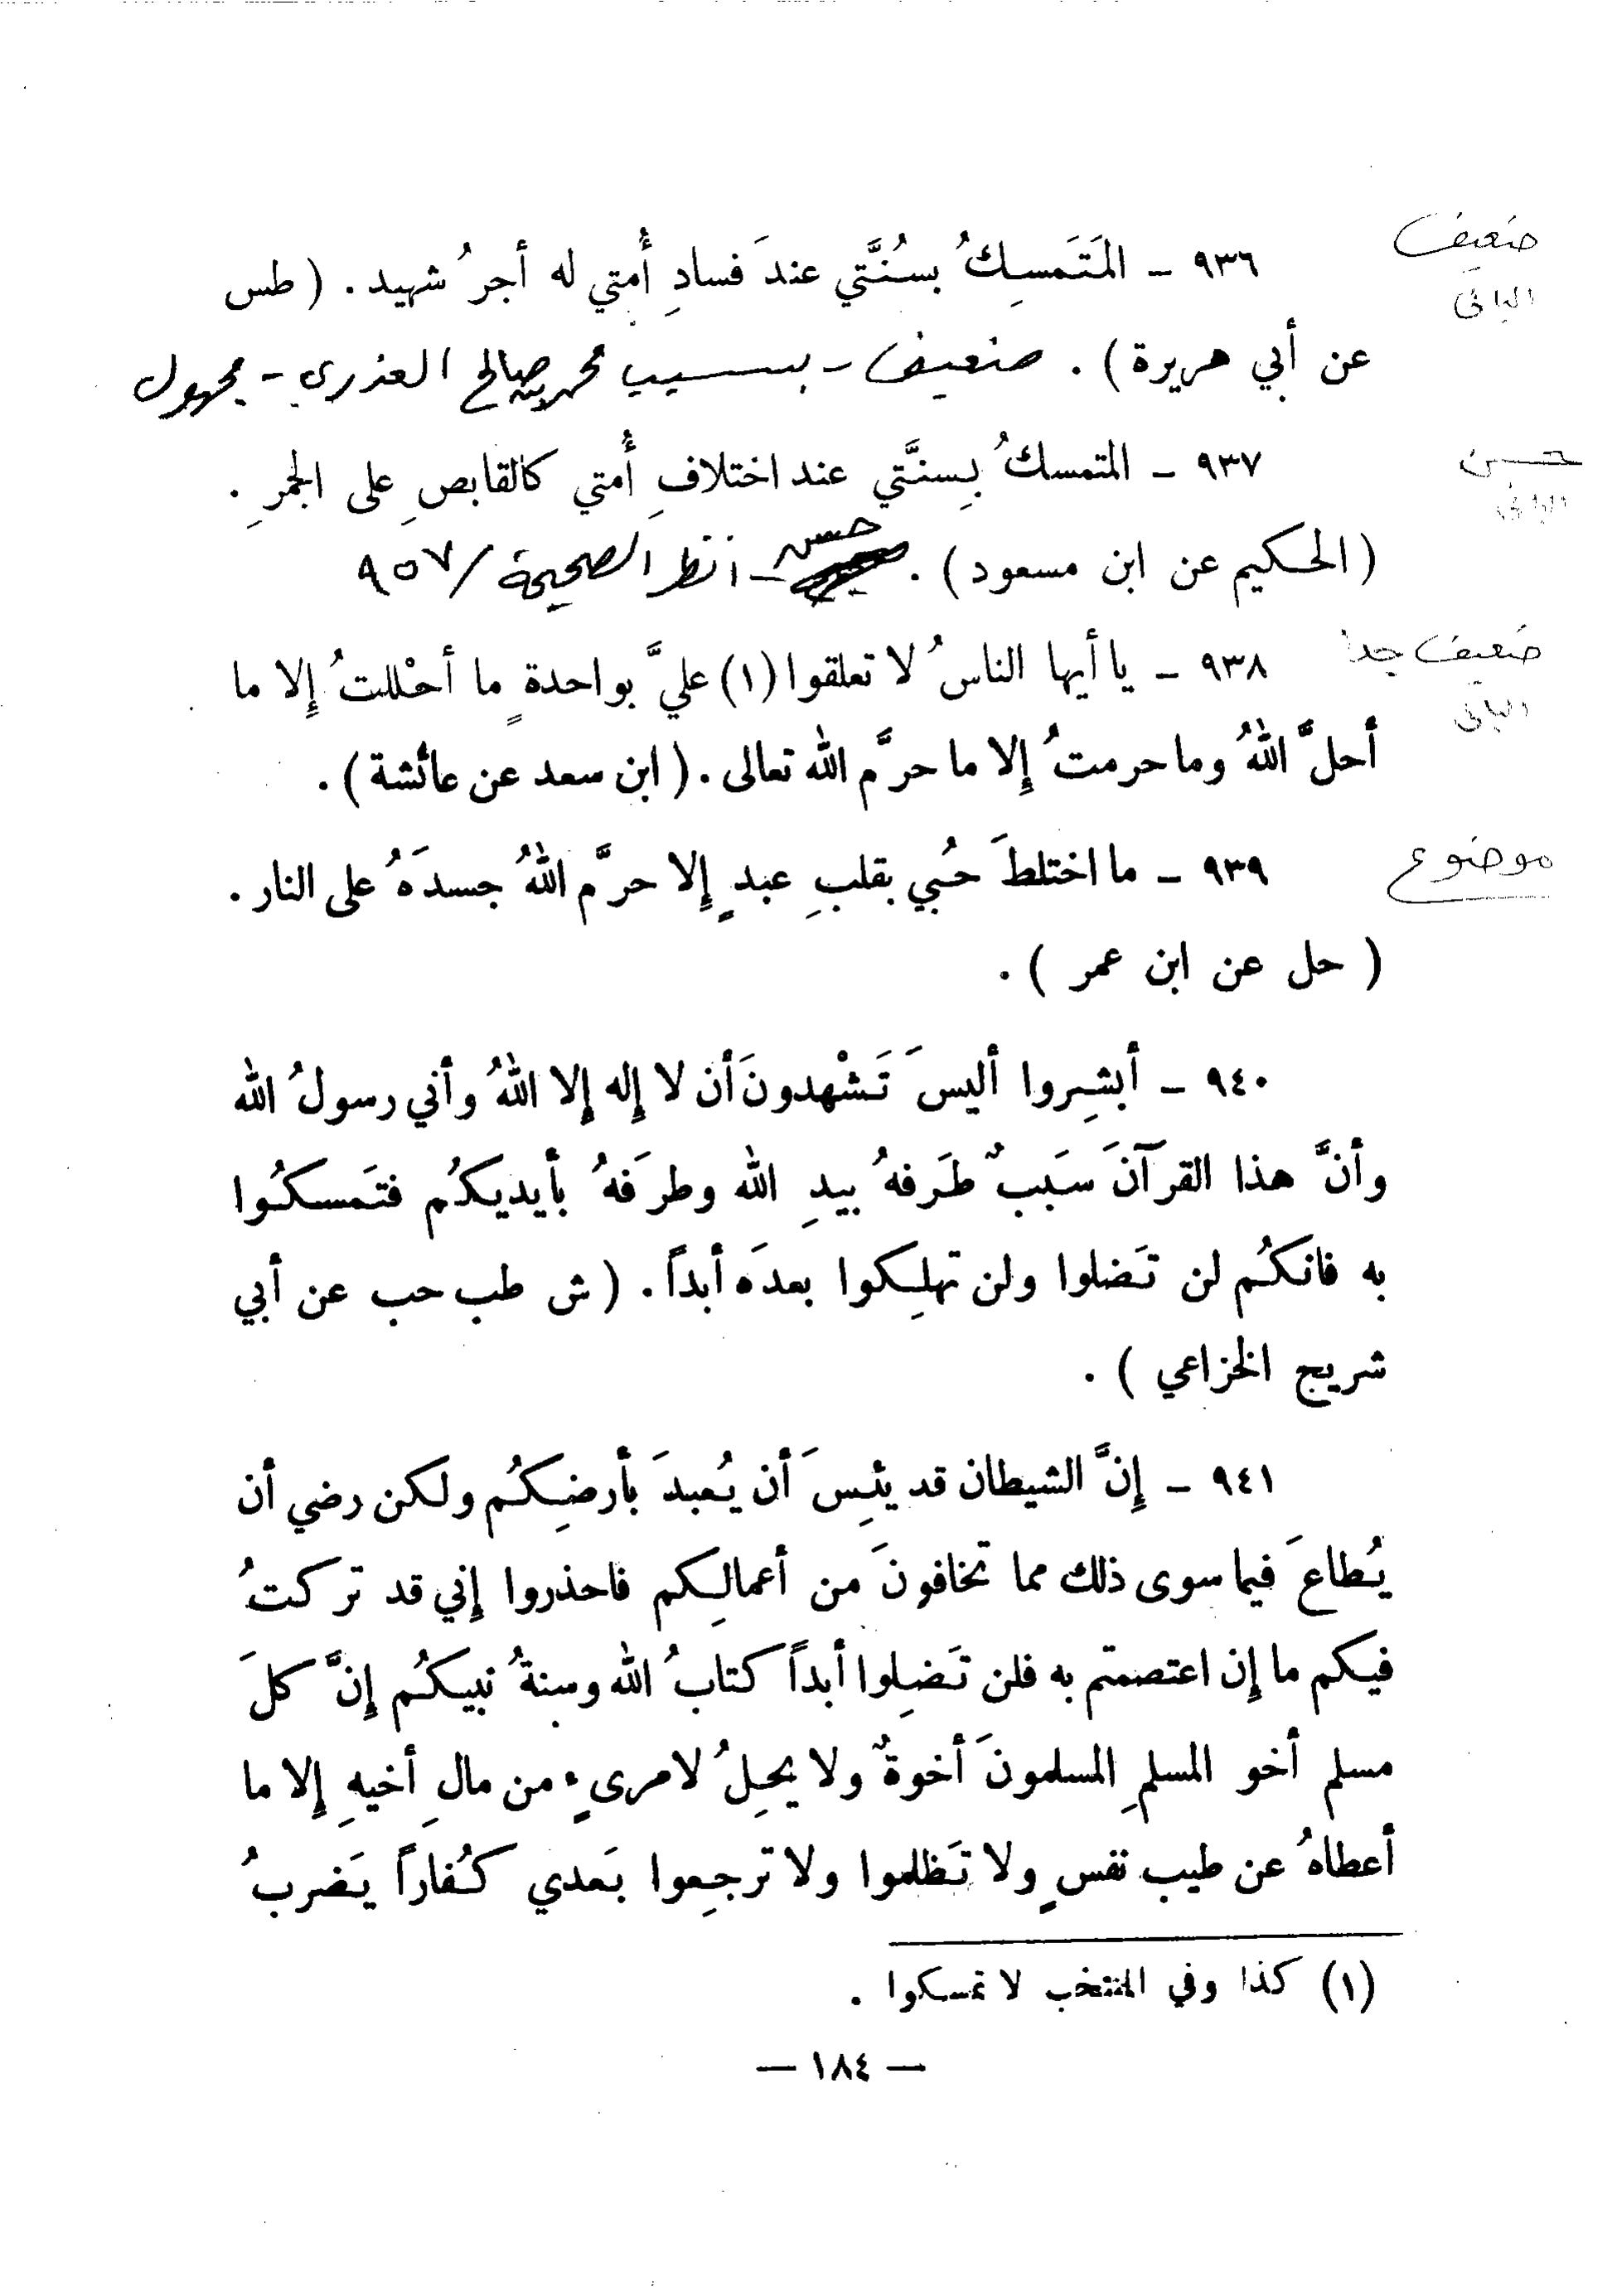 ضعيف
الباني
٩٣٦ ـ المَتَمسِكُ بسُنَّتي عندَ فسادِ أُمتي له أجرُ شهيد . ( طس
عن أبي هريرة ) . ضعيف - بسبب محمد بن صالح العذري - مجهول
حسن
الباني
٩٣٧ ـ المتمسكُ بِسنَّتي عند اختلافِ أُمتي كالقابصِ على الجمرِ .
( الحكيم عن ابن مسعود ) . حسن - انظر الصحيحة / ٩٥٧
ضعيف جداً
الباني
٩٣٨ ـ يا أيها الناسُ لا تعلقوا (١) عليَّ بواحدةٍ ما أحْللتُ إِلا ما
أحلَّ اللهُ وما حرمتُ إِلا ما حرَّم الله تعالى . ( ابن سعد عن عائشة ) .
موضوع
٩٣٩ ـ ما اختلطَ حُبي بقلبِ عبدٍ إِلا حرَّم اللهُ جسدَهُ على النار .
( حل عن ابن عمر ) .
٩٤٠ ـ أبشِروا أليسَ تَشْهدونَ أن لا إِله إِلا اللهُ وأني رسولُ الله
وأنَّ هذا القرآنَ سَببٌ طَرفهُ بيدِ الله وطرَفهُ بأيديكُم فتَمسكُوا
به فانكُم لن تَضلوا ولن تهلِكوا بعدَه أبداً . ( ش طب حب عن أبي
شريح الخزاعي ) .
٩٤١ ـ إِنَّ الشيطان قد يئِسَ أن يُعبدَ بأرضِكُم ولكن رضي أن
يُطاعَ فيما سوى ذلك مما تخافونَ من أعمالِكم فاحذروا إِني قد تركتُ
فيكم ما إِن اعتصمتم به فلن تَضِلوا أبداً كتابُ الله وسنةُ نبيكُم إِنَّ كلَ
مسلم أخو المسلمِ المسلمونَ أخوةٌ ولا يحِلُ لامرىءٍ من مالِ أخيهِ إِلا ما
أعطاهُ عن طيب نفسٍ ولا تَظلموا ولا ترجِعوا بَعدي كُفاراً يَضربُ
(١) كذا وفي المنتخب لا تمسكوا .
— ١٨٤ —